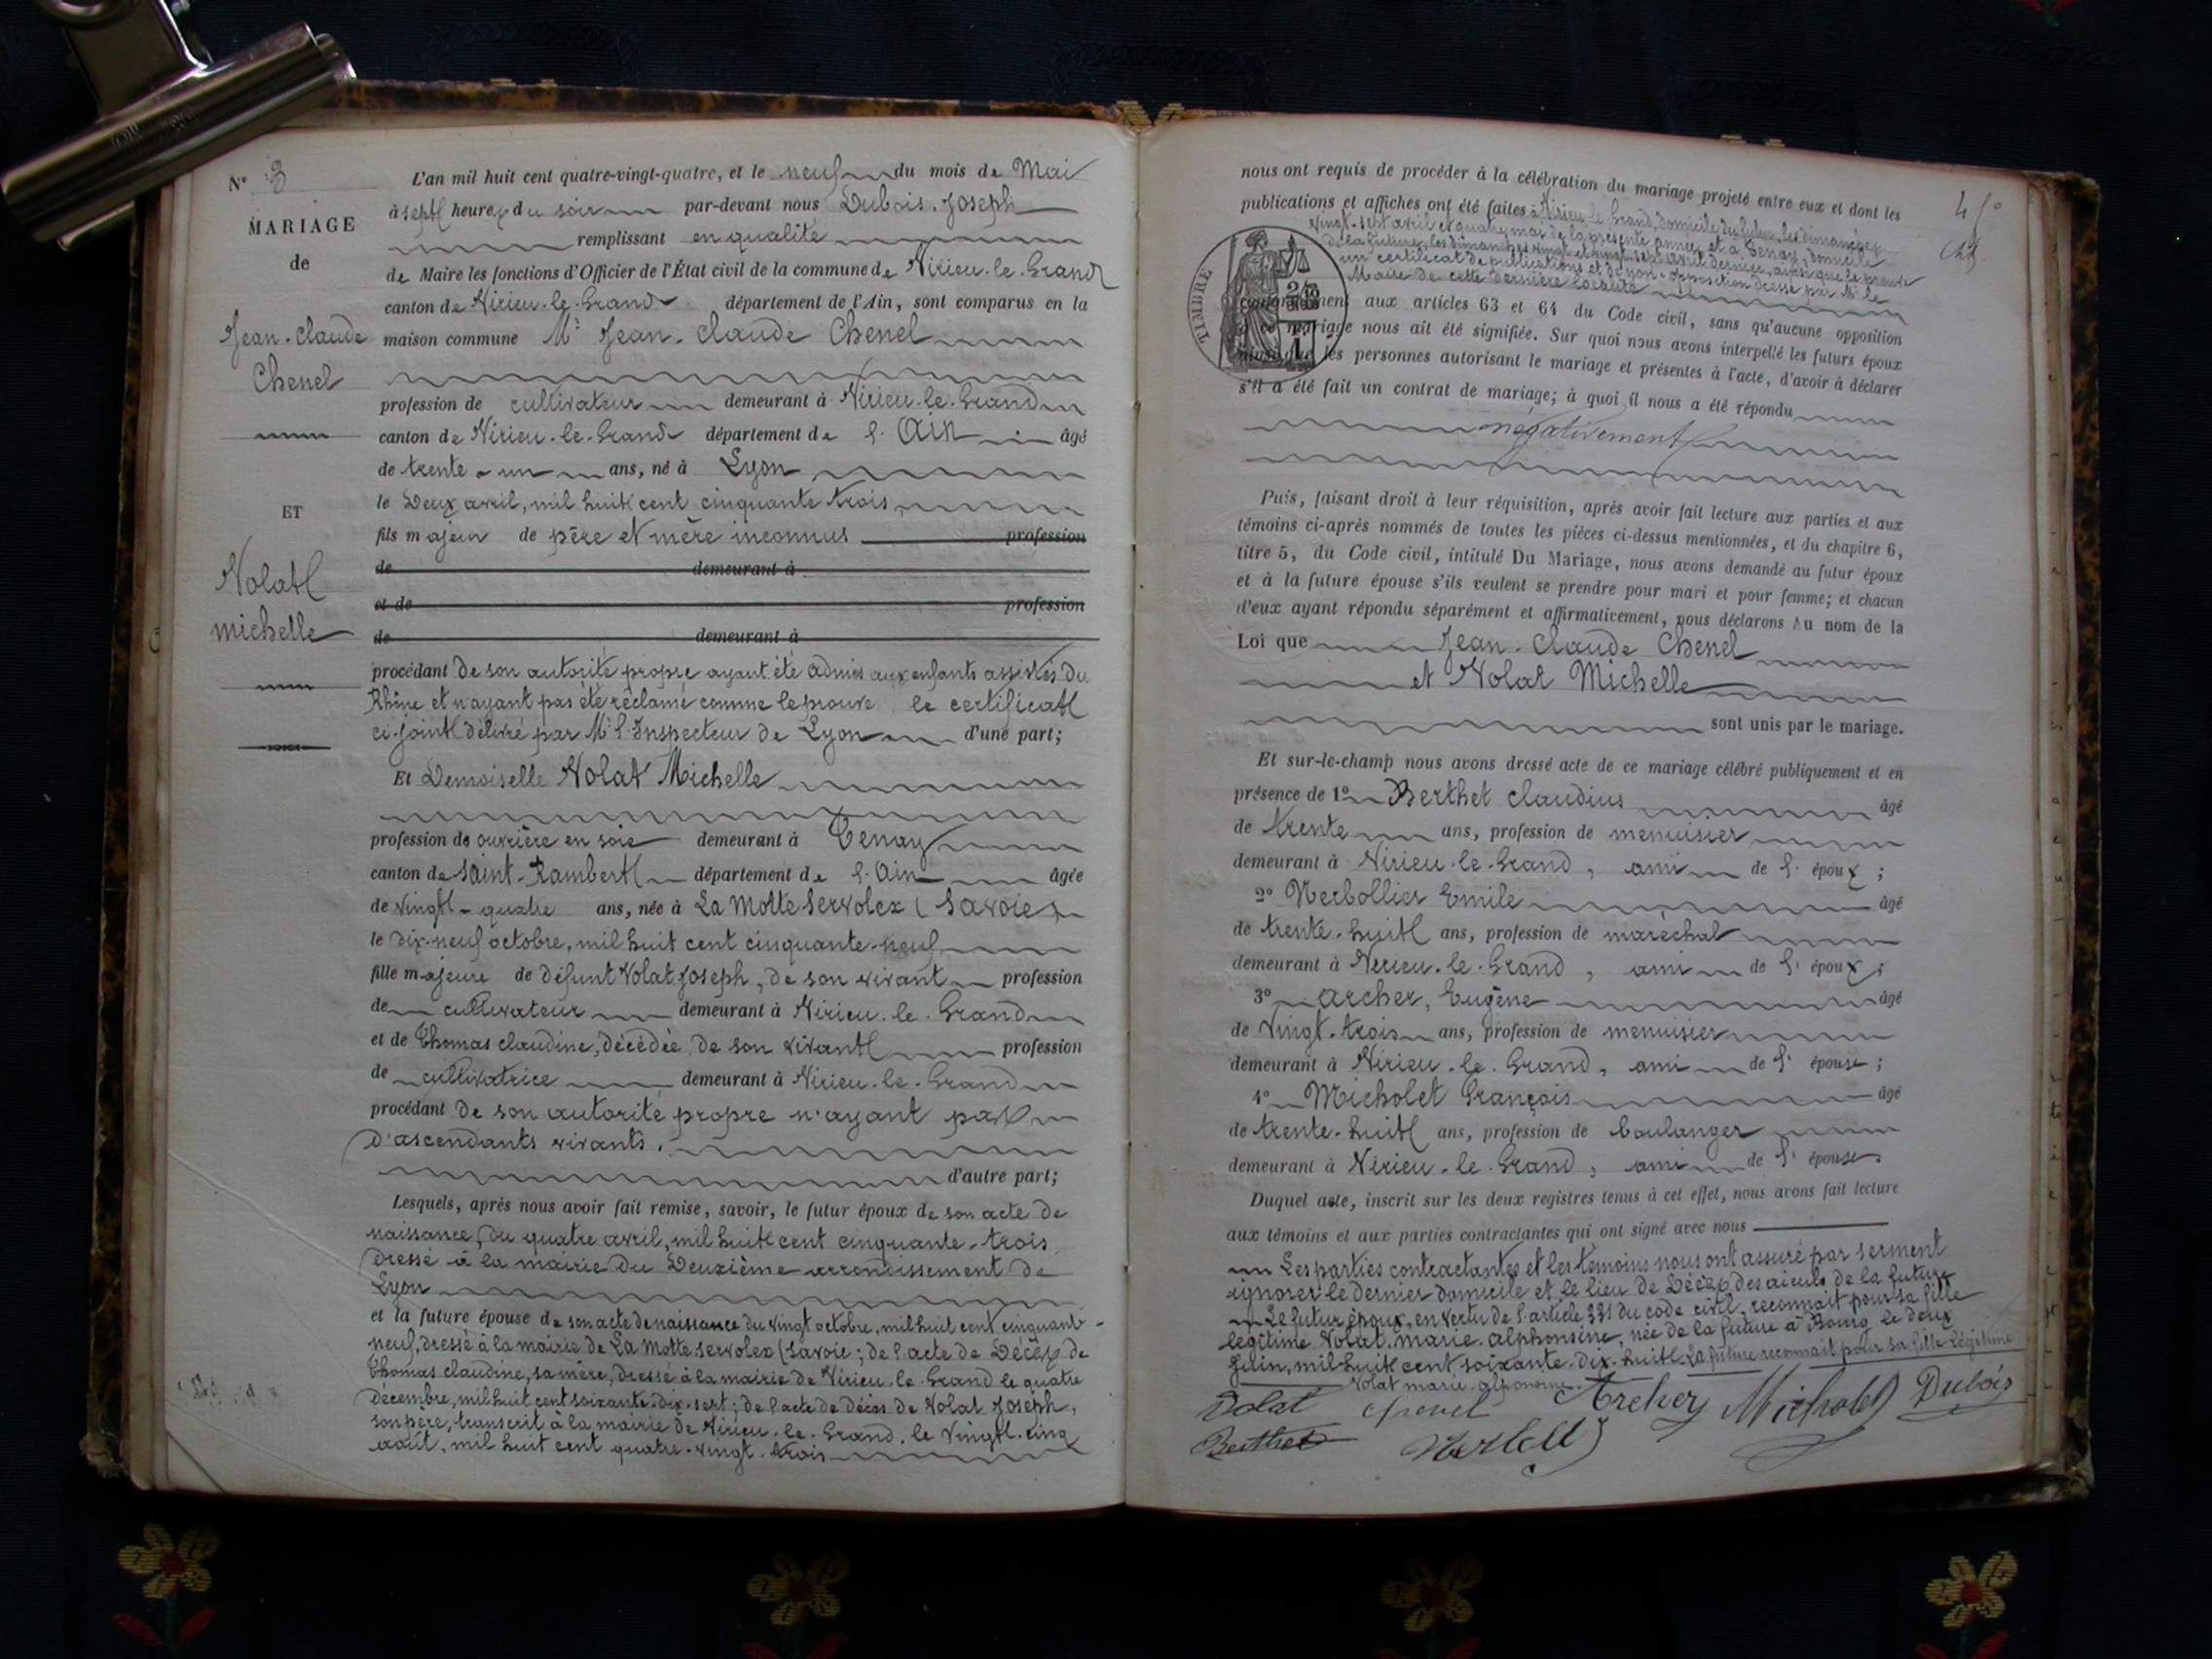 N° 3
MARIAGE
de
Jean-Claude
Chenel
ET
Volat
michelle
L'an mil huit cent quatre-vingt-quatre, et le neuf du mois de Mai
à sept heures du soir par-devant nous Dubois Joseph
remplissant en qualité
de Maire les fonctions d'Officier de l'État civil de la commune de Virieu-le-Grand
canton de Virieu-le-Grand département de l'Ain, sont comparus en la
maison commune Mr Jean-Claude Chenel
profession de cultivateur demeurant à Virieu-le-Grand
canton de Virieu-le-Grand département de l'Ain âgé
de trente-un ans, né à Lyon
le Deux avril, mil huit cent cinquante trois
fils majeur de père et mère inconnus profession
de demeurant à
et de profession
de demeurant à
procédant de son autorité propre ayant été admis aux enfants assistés du
Rhône et n'ayant pas été réclamé comme le prouve le certificat
ci-joint délivré par Mr l'Inspecteur de Lyon d'une part;
Et Demoiselle Volat Michelle
profession de ouvrière en soie demeurant à Tenay
canton de Saint-Rambert département de l'Ain âgée
de vingt-quatre ans, née à La Motte Servolex (Savoie)
le dix-neuf octobre, mil huit cent cinquante-neuf
fille majeure de défunt Volat Joseph, de son vivant profession
de cultivateur demeurant à Virieu-le-Grand
et de Thomas claudine, décédée, de son vivant profession
de cultivatrice demeurant à Virieu-le-Grand
procédant de son autorité propre n'ayant pas
d'ascendants vivants.
d'autre part;
Lesquels, après nous avoir fait remise, savoir, le futur époux de son acte de
naissance, du quatre avril, mil huit cent cinquante-trois
dressé à la mairie du Deuxième arrondissement de
Lyon
et la future épouse de son acte de naissance du vingt octobre, mil huit cent cinquante-
neuf, dressé à la mairie de La Motte Servolex (Savoie; de l'acte de Décès de
Thomas claudine, sa mère, dressé à la mairie de Virieu-le-Grand le quatre
Décembre, mil huit cent soixante-dix-sept; de l'acte de Décès de Volat Joseph,
son père, transcrit à la mairie de Virieu-le-Grand, le Vingt-cinq
août, mil huit cent quatre-vingt-trois
nous ont requis de procéder à la célébration du mariage projeté entre eux et dont les
publications et affiches ont été faites à Virieu-le-Grand, domicile du futur, les dimanches
Vingt-sept avril et quatre mai de la présente année et à Tenay, domicile
de la future, les dimanches vingt et vingt-sept avril dernier, ainsi que le prouve
un certificat de publications et de non-opposition dressé par Mr le
Maire de cette dernière localité
TIMBRE
conformément aux articles 63 et 64 du Code civil, sans qu'aucune opposition
à ce mariage nous ait été signifiée. Sur quoi nous avons interpellé les futurs époux
ainsi que les personnes autorisant le mariage et présentes à l'acte, d'avoir à déclarer
s'il a été fait un contrat de mariage; à quoi il nous a été répondu
négativement
Puis, faisant droit à leur réquisition, après avoir fait lecture aux parties et aux
témoins ci-après nommés de toutes les pièces ci-dessus mentionnées, et du chapitre 6,
titre 5, du Code civil, intitulé Du Mariage, nous avons demandé au futur époux
et à la future épouse s'ils veulent se prendre pour mari et pour femme; et chacun
d'eux ayant répondu séparément et affirmativement, nous déclarons Au nom de la
Loi que Jean-Claude Chenel
et Volat Michelle
sont unis par le mariage.
Et sur-le-champ nous avons dressé acte de ce mariage célébré publiquement et en
présence de 1° Berthet claudius âgé
de trente ans, profession de menuisier
demeurant à Virieu-le-Grand, ami de l'époux;
2° Verbollier Emile âgé
de trente-huit ans, profession de maréchal
demeurant à Virieu-le-Grand, ami de l'époux;
3° archer, Eugène âgé
de Vingt-trois ans, profession de menuisier
demeurant à Virieu-le-Grand, ami de l'épouse;
4° Micholet François âgé
de trente-huit ans, profession de boulanger
demeurant à Virieu-le-Grand, ami de l'épouse.
Duquel acte, inscrit sur les deux registres tenus à cet effet, nous avons fait lecture
aux témoins et aux parties contractantes qui ont signé avec nous
Les parties contractantes et les témoins nous ont assuré par serment
ignorer le dernier domicile et le lieu de Décès des aïeuls de la future
Le futur époux, en vertu de l'article 331 du code civil, reconnaît pour sa fille
légitime Volat marie alphonsine, née de la future à Bourg, le deux
Juin, mil huit cent soixante-dix-huit. La future reconnaît pour sa fille légitime
Volat marie alphonsine.
Volat Chenel Archer Micholet Dubois
Berthet